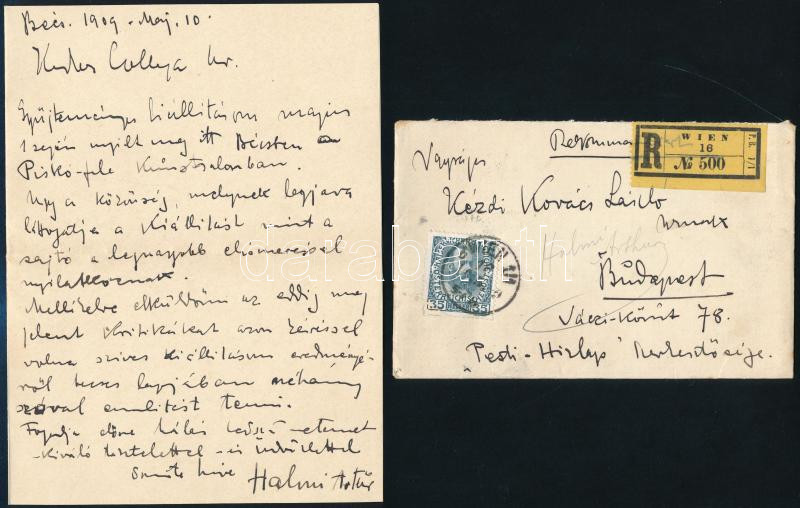 Bécs. 1909. Máj. 10.
Kedves Collega Ur.
Gyüjteményes kiállitásom majus
1 sején nyilt meg itt Bécsben a
Pisko-fele Kunstsalonban.
Ugy a közönség, melynek legjava
látogatja a kiállitást mint a
sajtó a legnagyobb elismeréssel
nyilatkoznak.
Mellékelve elküldöm az eddig meg
jelent kritikákat azon kéréssel
volna szives kiállitásom eredményé-
ről becses lapjában néhány
szóval emlitést tenni.
Fogadja előre hálás köszönetemet
kiváló tisztelettel és üdvözlettel
hive
Halmi Artúr
Nagyságos
Kézdi Kovács László
urnak
Budapest
Váczi-Körút 78.
"Pesti-Hirlap" szerkesztősége.
Halmi Arthur
R
WIEN
16
№ 500
35 35
WIEN
darabanth.com